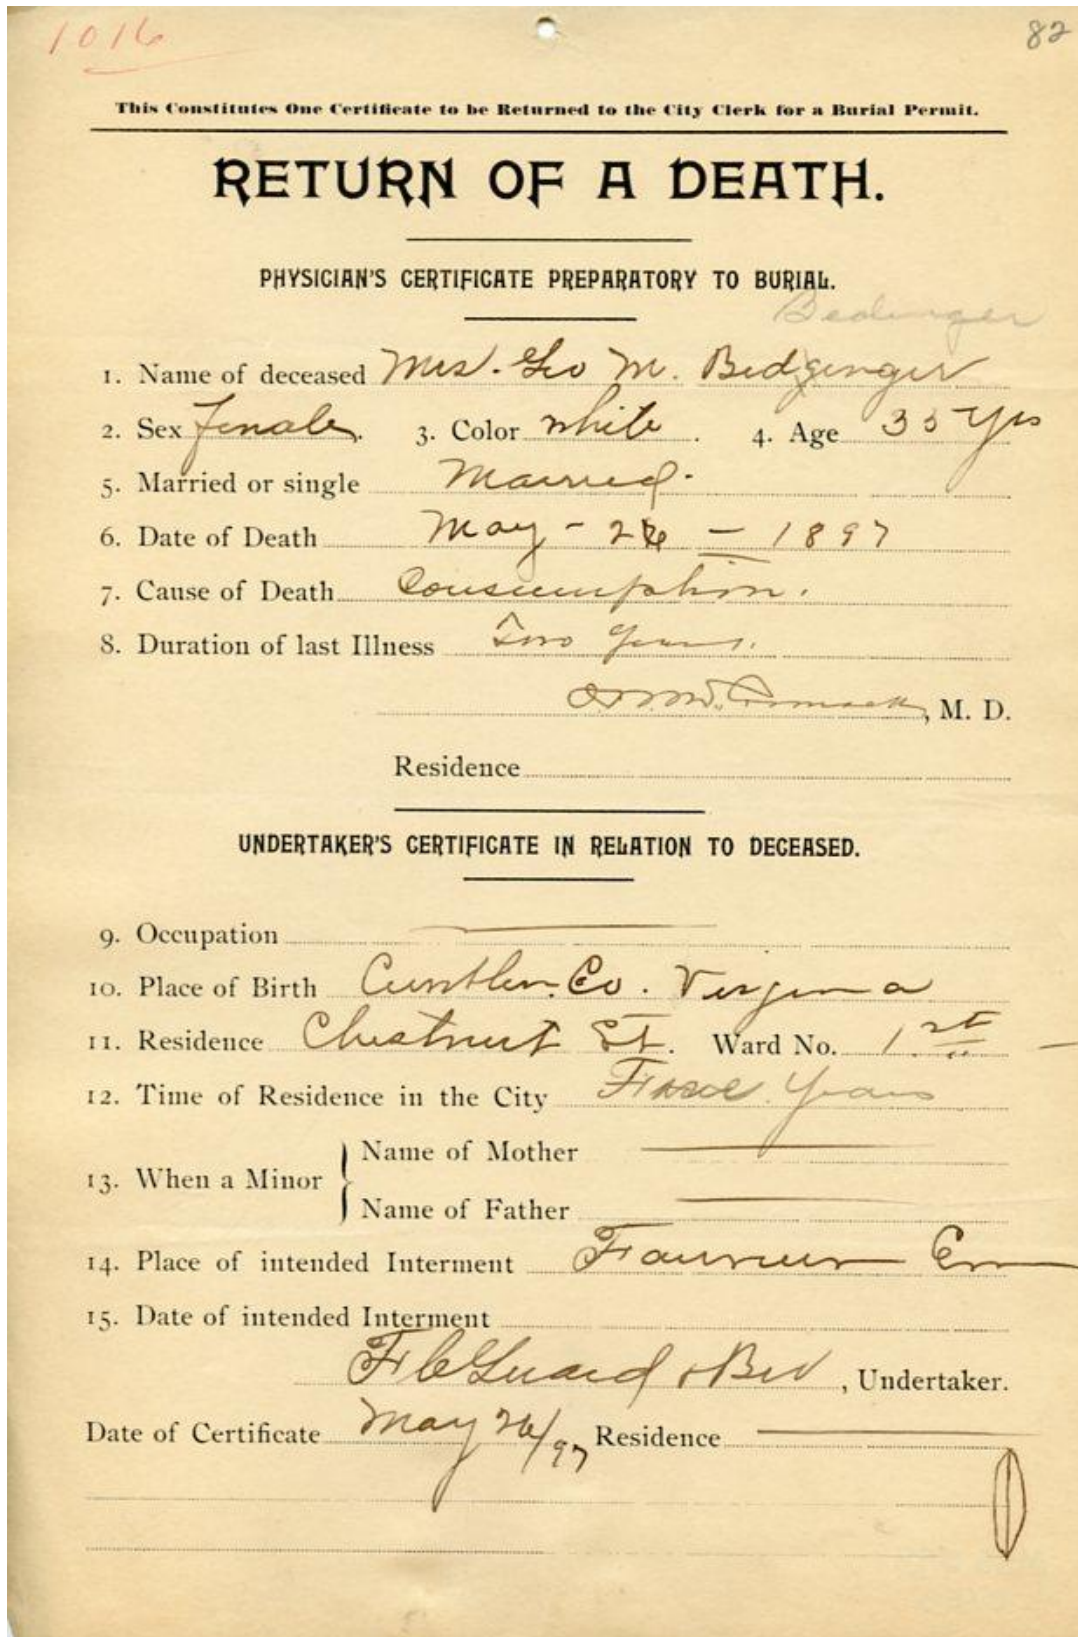 1016
82
This Constitutes One Certificate to be Returned to the City Clerk for a Burial Permit.
RETURN OF A DEATH.
PHYSICIAN'S CERTIFICATE PREPARATORY TO BURIAL.
Bedinger
1. Name of deceased Mrs. Geo M. Bedginger
2. Sex female. 3. Color white. 4. Age 35 yrs
5. Married or single Married.
6. Date of Death May - 26 - 1897
7. Cause of Death Consumption.
8. Duration of last Illness Two years.
, M. D.
Residence
UNDERTAKER'S CERTIFICATE IN RELATION TO DECEASED.
9. Occupation
10. Place of Birth Co. Virginia
11. Residence Chestnut St. Ward No. 1st
12. Time of Residence in the City Years
13. When a Minor
Name of Mother
Name of Father
14. Place of intended Interment
15. Date of intended Interment
, Undertaker.
Date of Certificate May 26/97 Residence